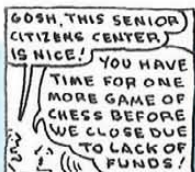 GOSH, THIS SENIOR
CITIZENS CENTER
IS NICE!
YOU HAVE
TIME FOR ONE
MORE GAME OF
CHESS BEFORE
WE CLOSE DUE
TO LACK OF
FUNDS!